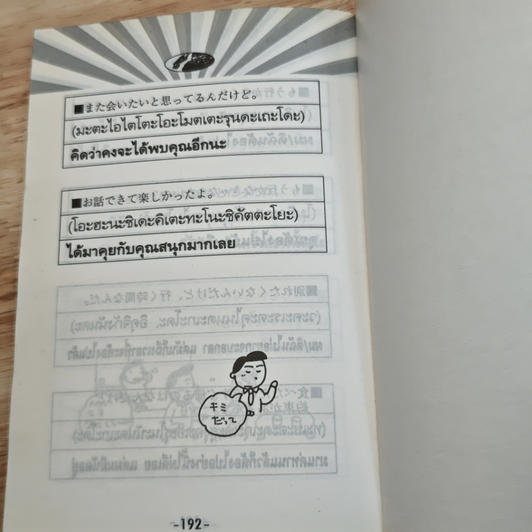 ■また会いたいと思ってるんだけど。
(มะตะไอไตโตะโอะโมตเตะรุนดะเถะโดะ)
คิดว่าคงจะได้พบคุณอีกนะ
■お話できて楽しかったよ。
(โอะฮะนะชิเดะคิเตะทะโนะชิคัตตะโยะ)
ได้มาคุยกับคุณสนุกมากเลย
キミ
だって
-192-